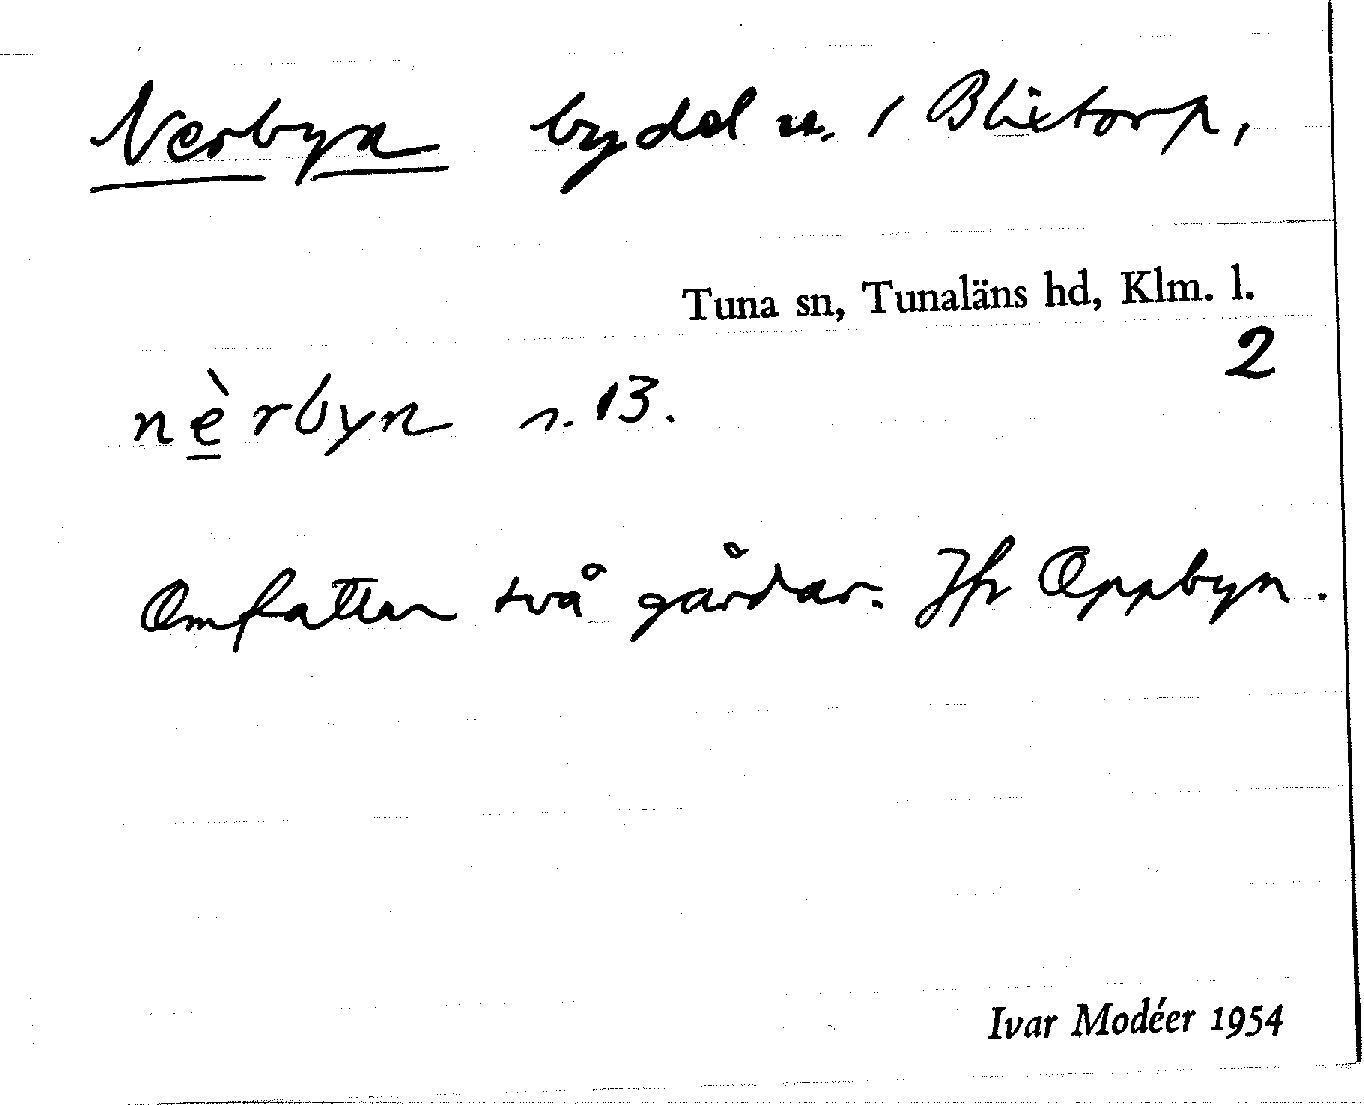 Nerbyn bydel n. i Blixtorp,
Tuna sn, Tunaläns hd, Klm. l.
2
nèrbyn s. 13.
Omfattar två gårdar. Jfr Oppbyn.
Ivar Modéer 1954